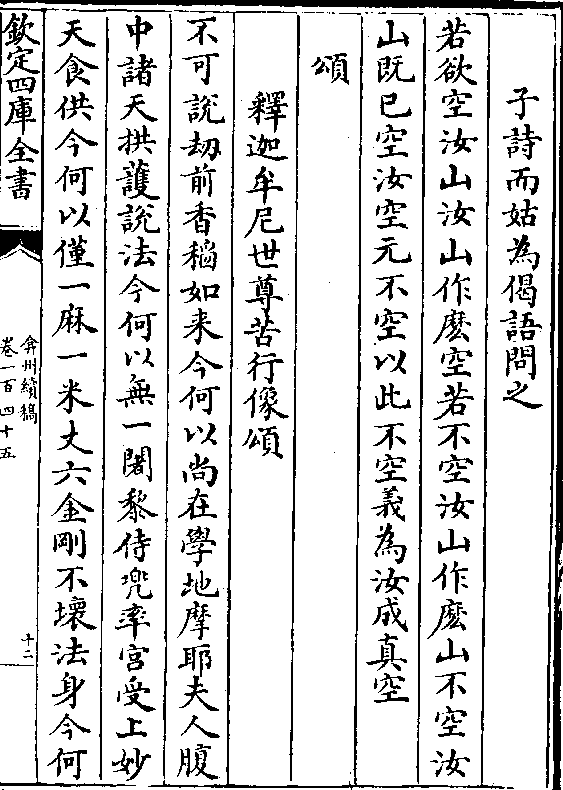 子詩而姑為偈語問之
若欲空汝山汝山作麽空若不空汝山作麽山不空汝
山既已空汝空元不空以此不空義為汝成真空
頌
釋迦牟尼世尊苦行像頌
不可說劫前香稻如来今何以尚在學地摩耶夫人腹
中諸天拱䕶說法今何以無一闍黎侍兜率宮受上妙
天食供今何以僅一麻一米丈六金剛不壞法身今何
欽定四庫全書
弇州續稿
卷一百四十五
十二